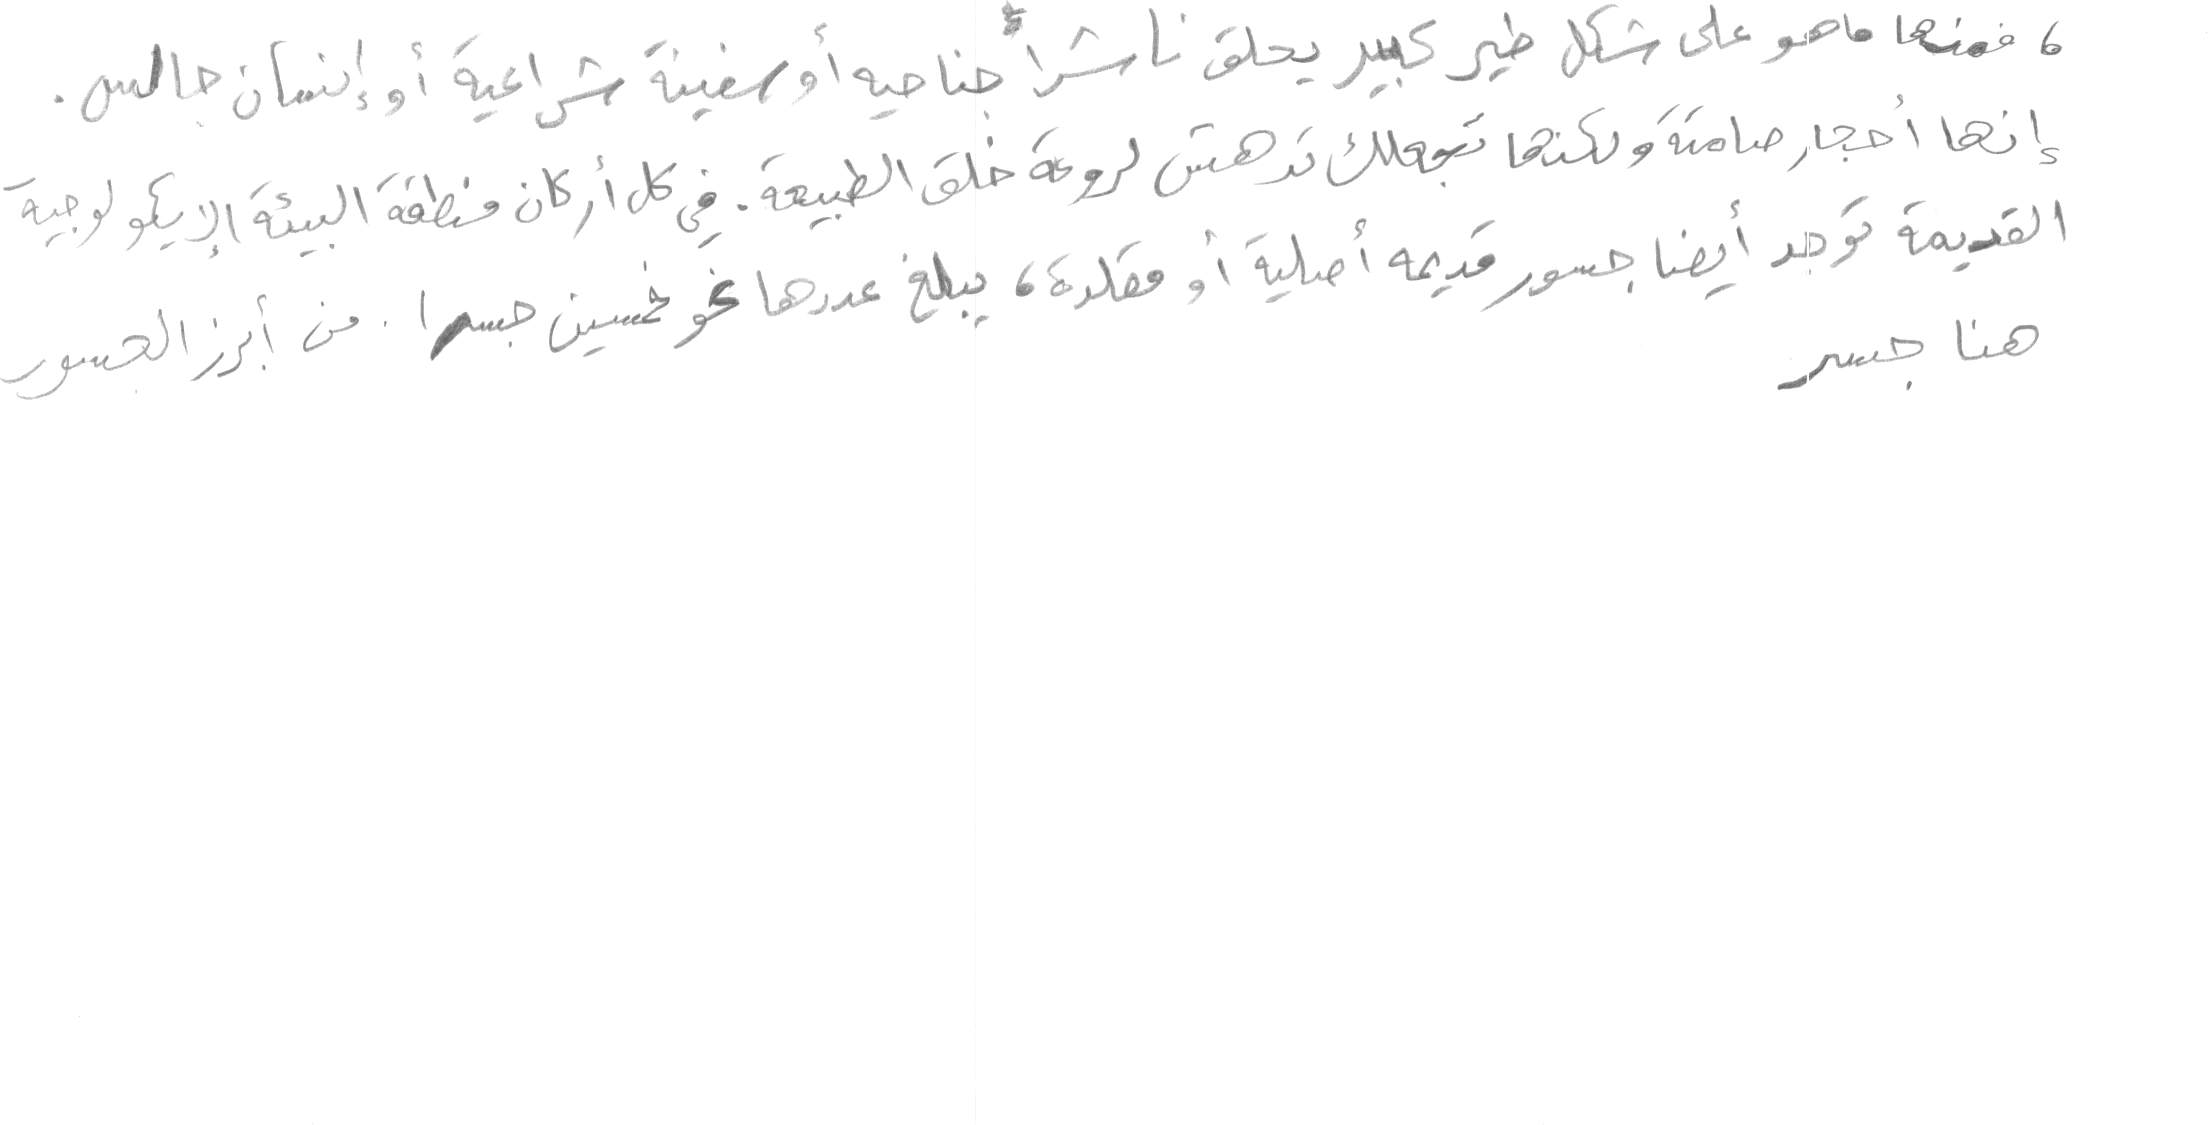 ، فمنها ماهو على شكل طير كبير يحلق ناشراً جناحيه أو سفينة شراعية أو إنسان جالس .
إنها أحجار صامتة ولكنها تجعلك تدهش لروعة خلق الطبيعة . في كل أركان منطقة البيئة الإيكولوجية
القديمة توجد أيضا جسور قديمه أصلية أو مقلدة ، يبلغ عددها نحو خمسين جسرا . من أبرز الجسور
هنا جسر